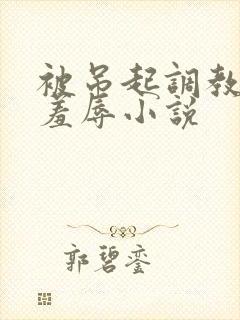 被吊起調教
羞辱小説
郭碧銮